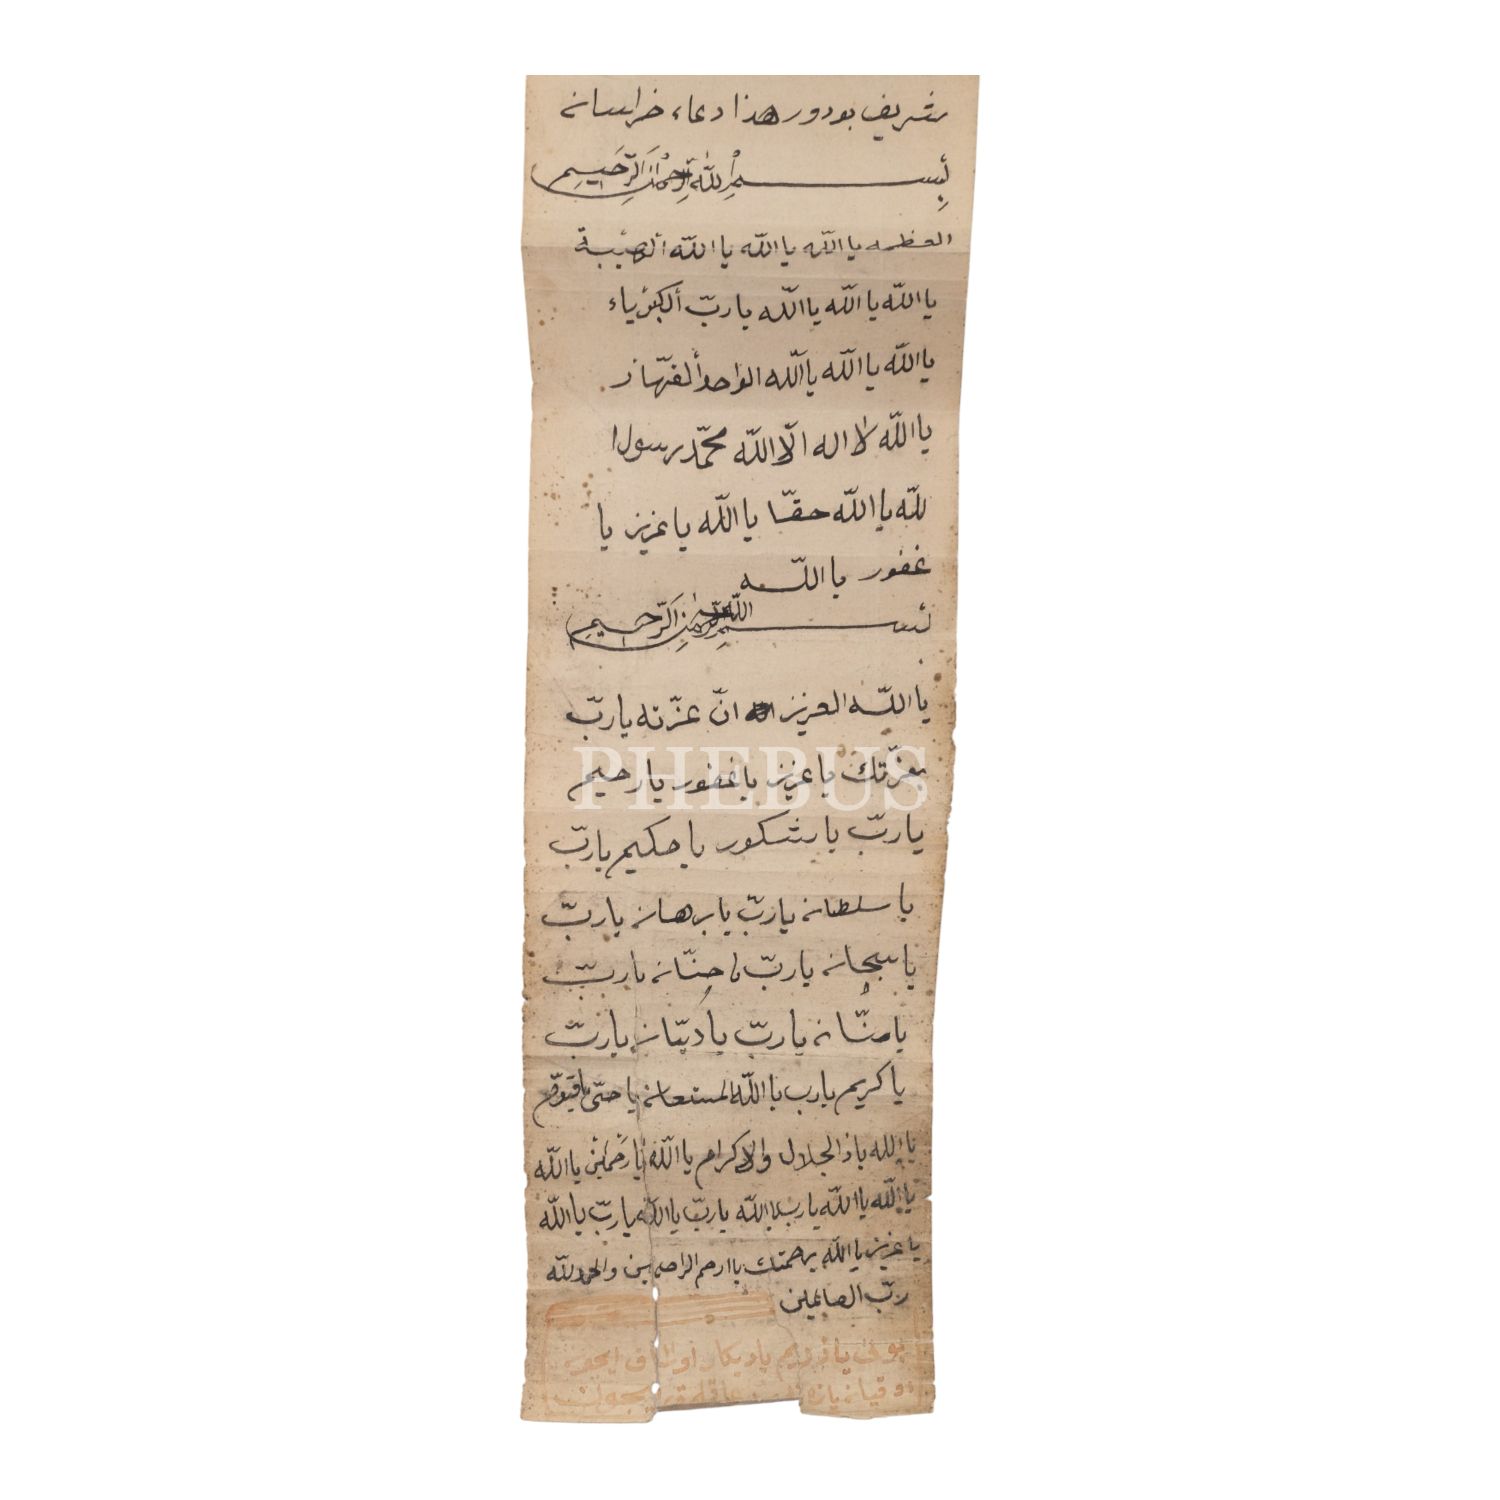 شريف بودور هذا دعاء خراسانه
بِسْمِ اللّٰه الرَّحْمٰن الرَّحِيمِ
العظمه يا اللّه يا اللّه يا اللّه ألهيبة
يا اللّه يا اللّه يا اللّه يا ربّ ألكبرياء
يا اللّه يا اللّه يا اللّه الواحد ألقهّار
يا اللّه لا اله الّا اللّه محمّد رسول ا
للّه يا اللّه حقّا يا اللّه يا عزيز يا
غفور يا اللّه
بسم اللّه الرحمن الرّحيم
يا اللّه العزيز انّ عزّته يا ربّ
PHEBUS
بعزّتك يا عزيز يا غفور يا رحيم
يا ربّ يا شكور يا حكيم يا ربّ
يا سلطانه يا ربّ يا برهانه يا ربّ
يا سبحانه يا ربّ يا حنّانه يا ربّ
يا منّانه يا ربّ يا ديّانه يا ربّ
يا كريم يا رب يا اللّه المستعانه يا حىّ يا قيّوم
يا اللّه يا ذالجلال والاكرام يا اللّه يا رَحْمٰن يا اللّه
يا اللّه يا اللّه يا رب يا اللّه يا ربّ يا اللّه يا ربّ يا اللّه
يا عزيز يا اللّه برحمتك يا ارحم الراحمين والحمد للّه
ربّ العالمين
بونى يازديم ياديكار اولمق ايچون
اوقيانه يازانه